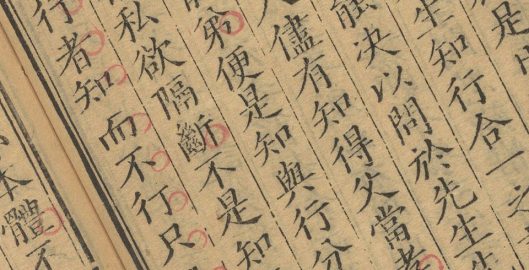 是
生知行合一之
能决以問於先生
人儘有知得父當孝
弟便是知與行分
私欲隔斷不是知
行者知而不行只
本體不